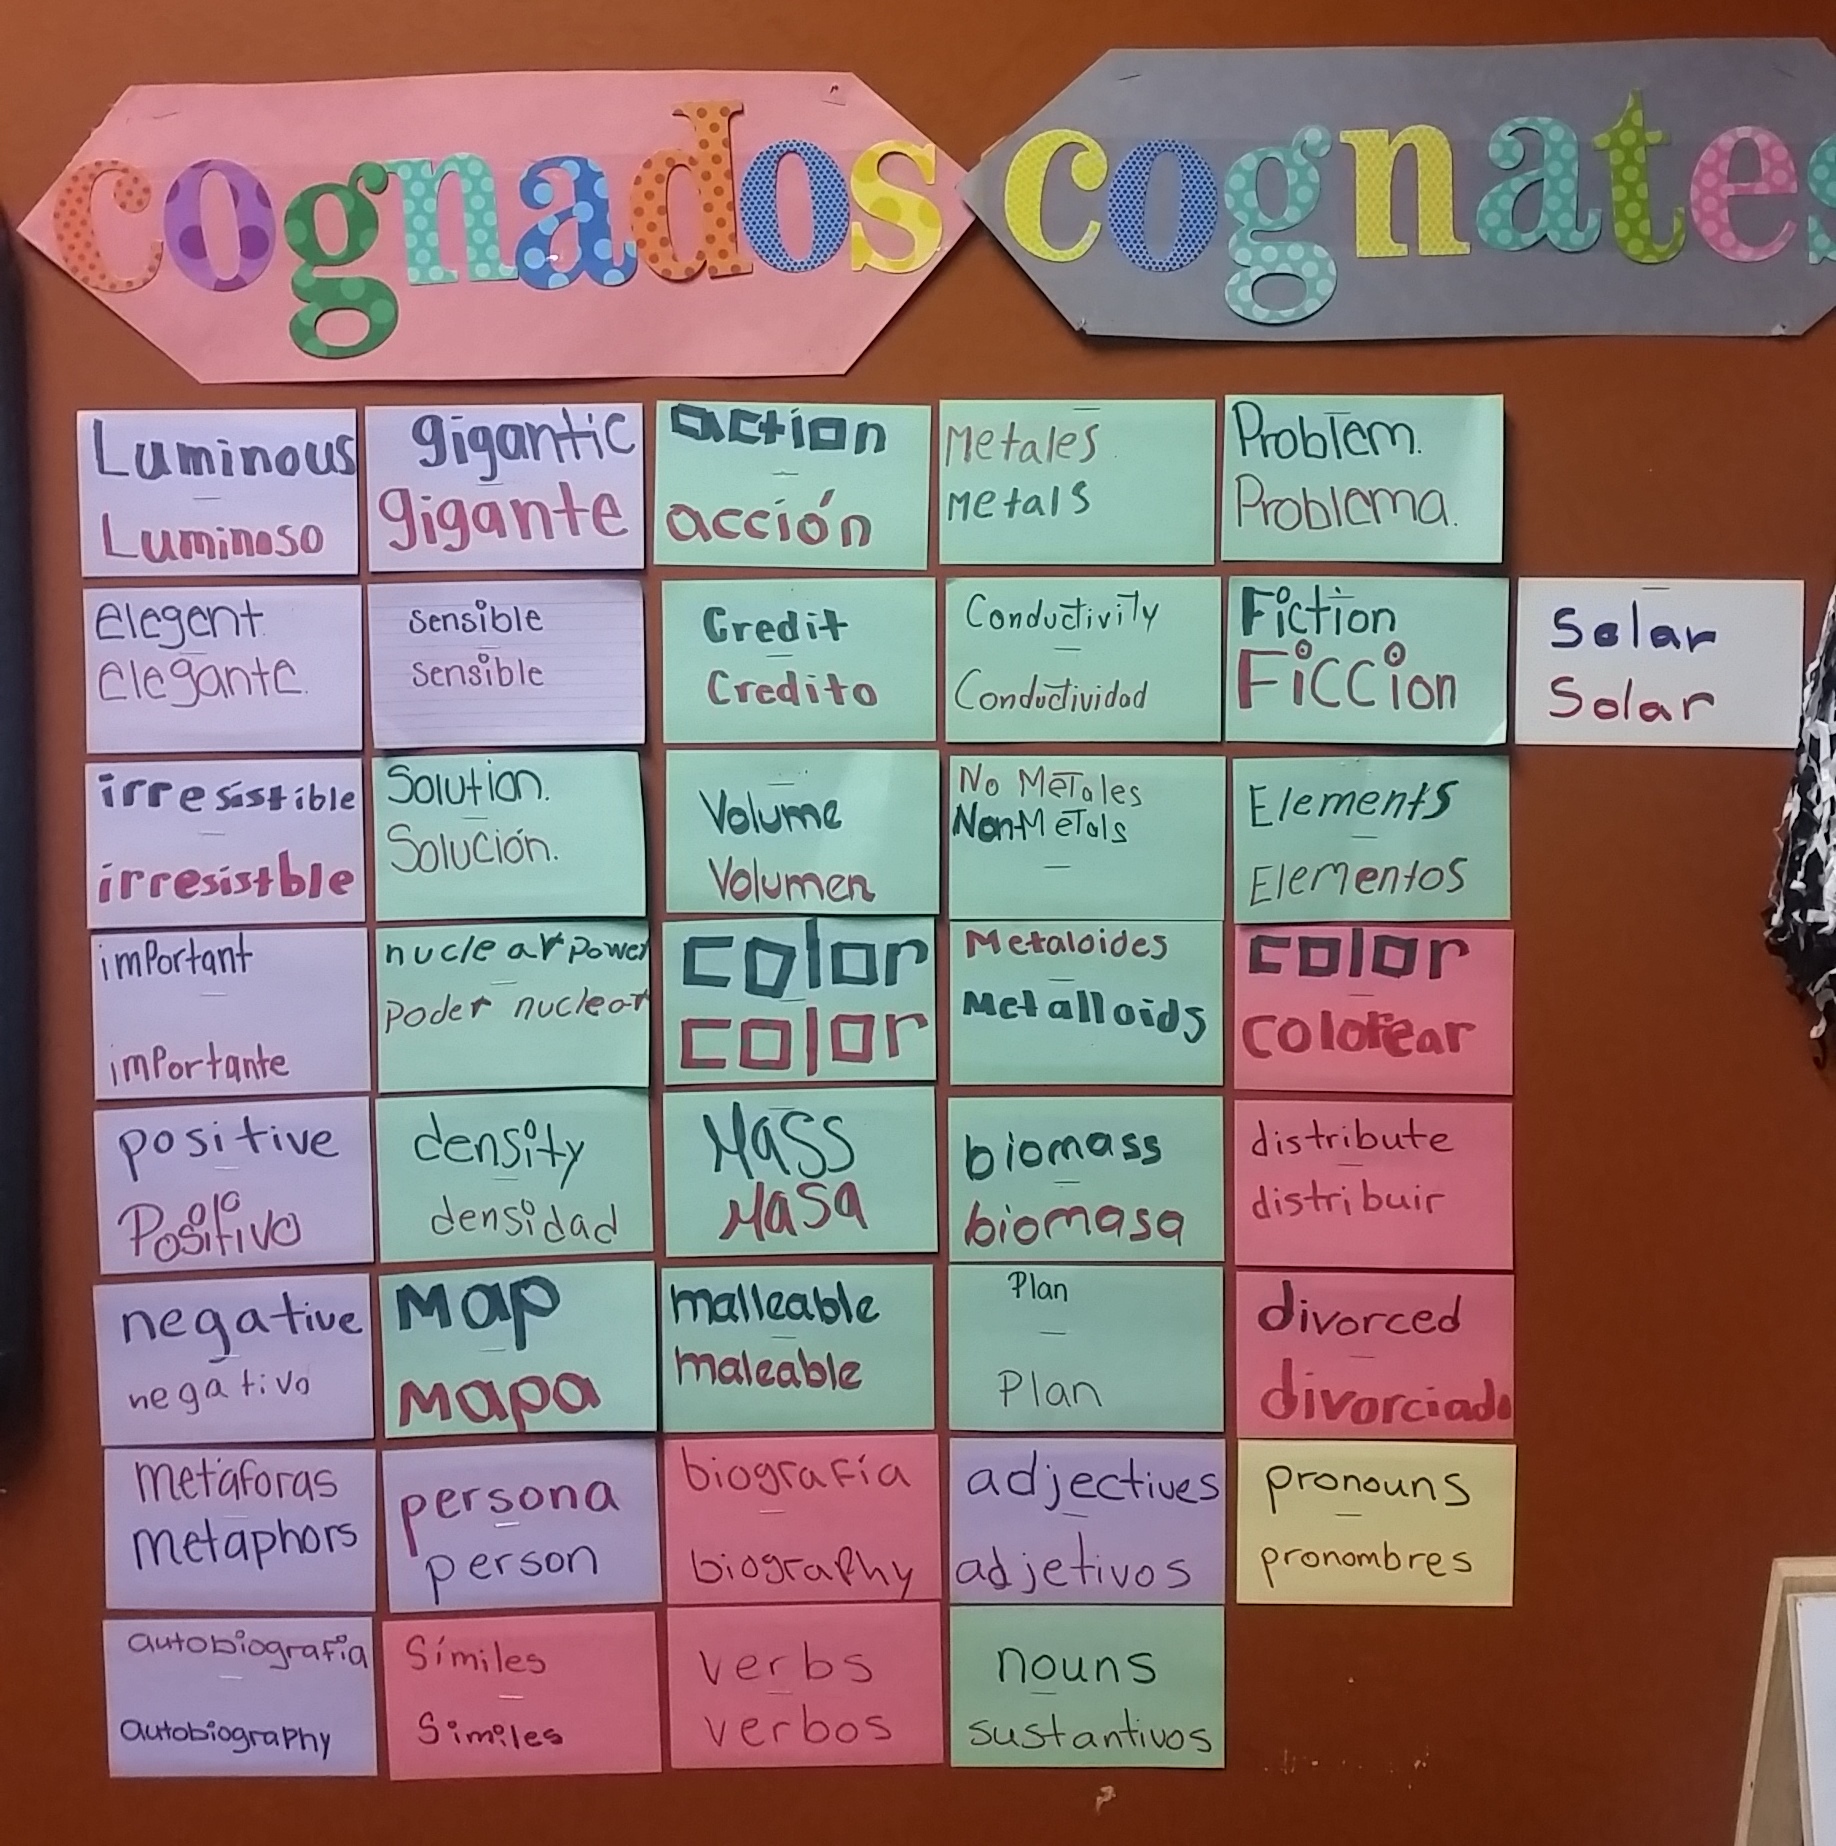 cognados cognates
Luminous
Luminoso
gigantic
gigante
action
acción
Metales
Metals
Problem.
Problema.
elegent
elegante.
sensible
sensible
Credit
Credito
Conductivity
Conductividad
Fiction
Ficcion
Solar
Solar
irresistible
irresistble
Solution.
Solución.
Volume
Volumen
No Metales
Non-Metals
Elements
Elementos
important
importante
nuclear power
poder nuclear
color
color
Metaloides
Metalloids
color
colorear
positive
Positivo
density
densidad
Mass
Masa
biomass
biomasa
distribute
distribuir
negative
negativo
Map
Mapa
malleable
maleable
Plan
Plan
divorced
divorciado
metáforas
metaphors
persona
person
biografía
biography
adjectives
adjetivos
pronouns
pronombres
autobiografia
autobiography
Símiles
Similes
verbs
verbos
nouns
sustantivos